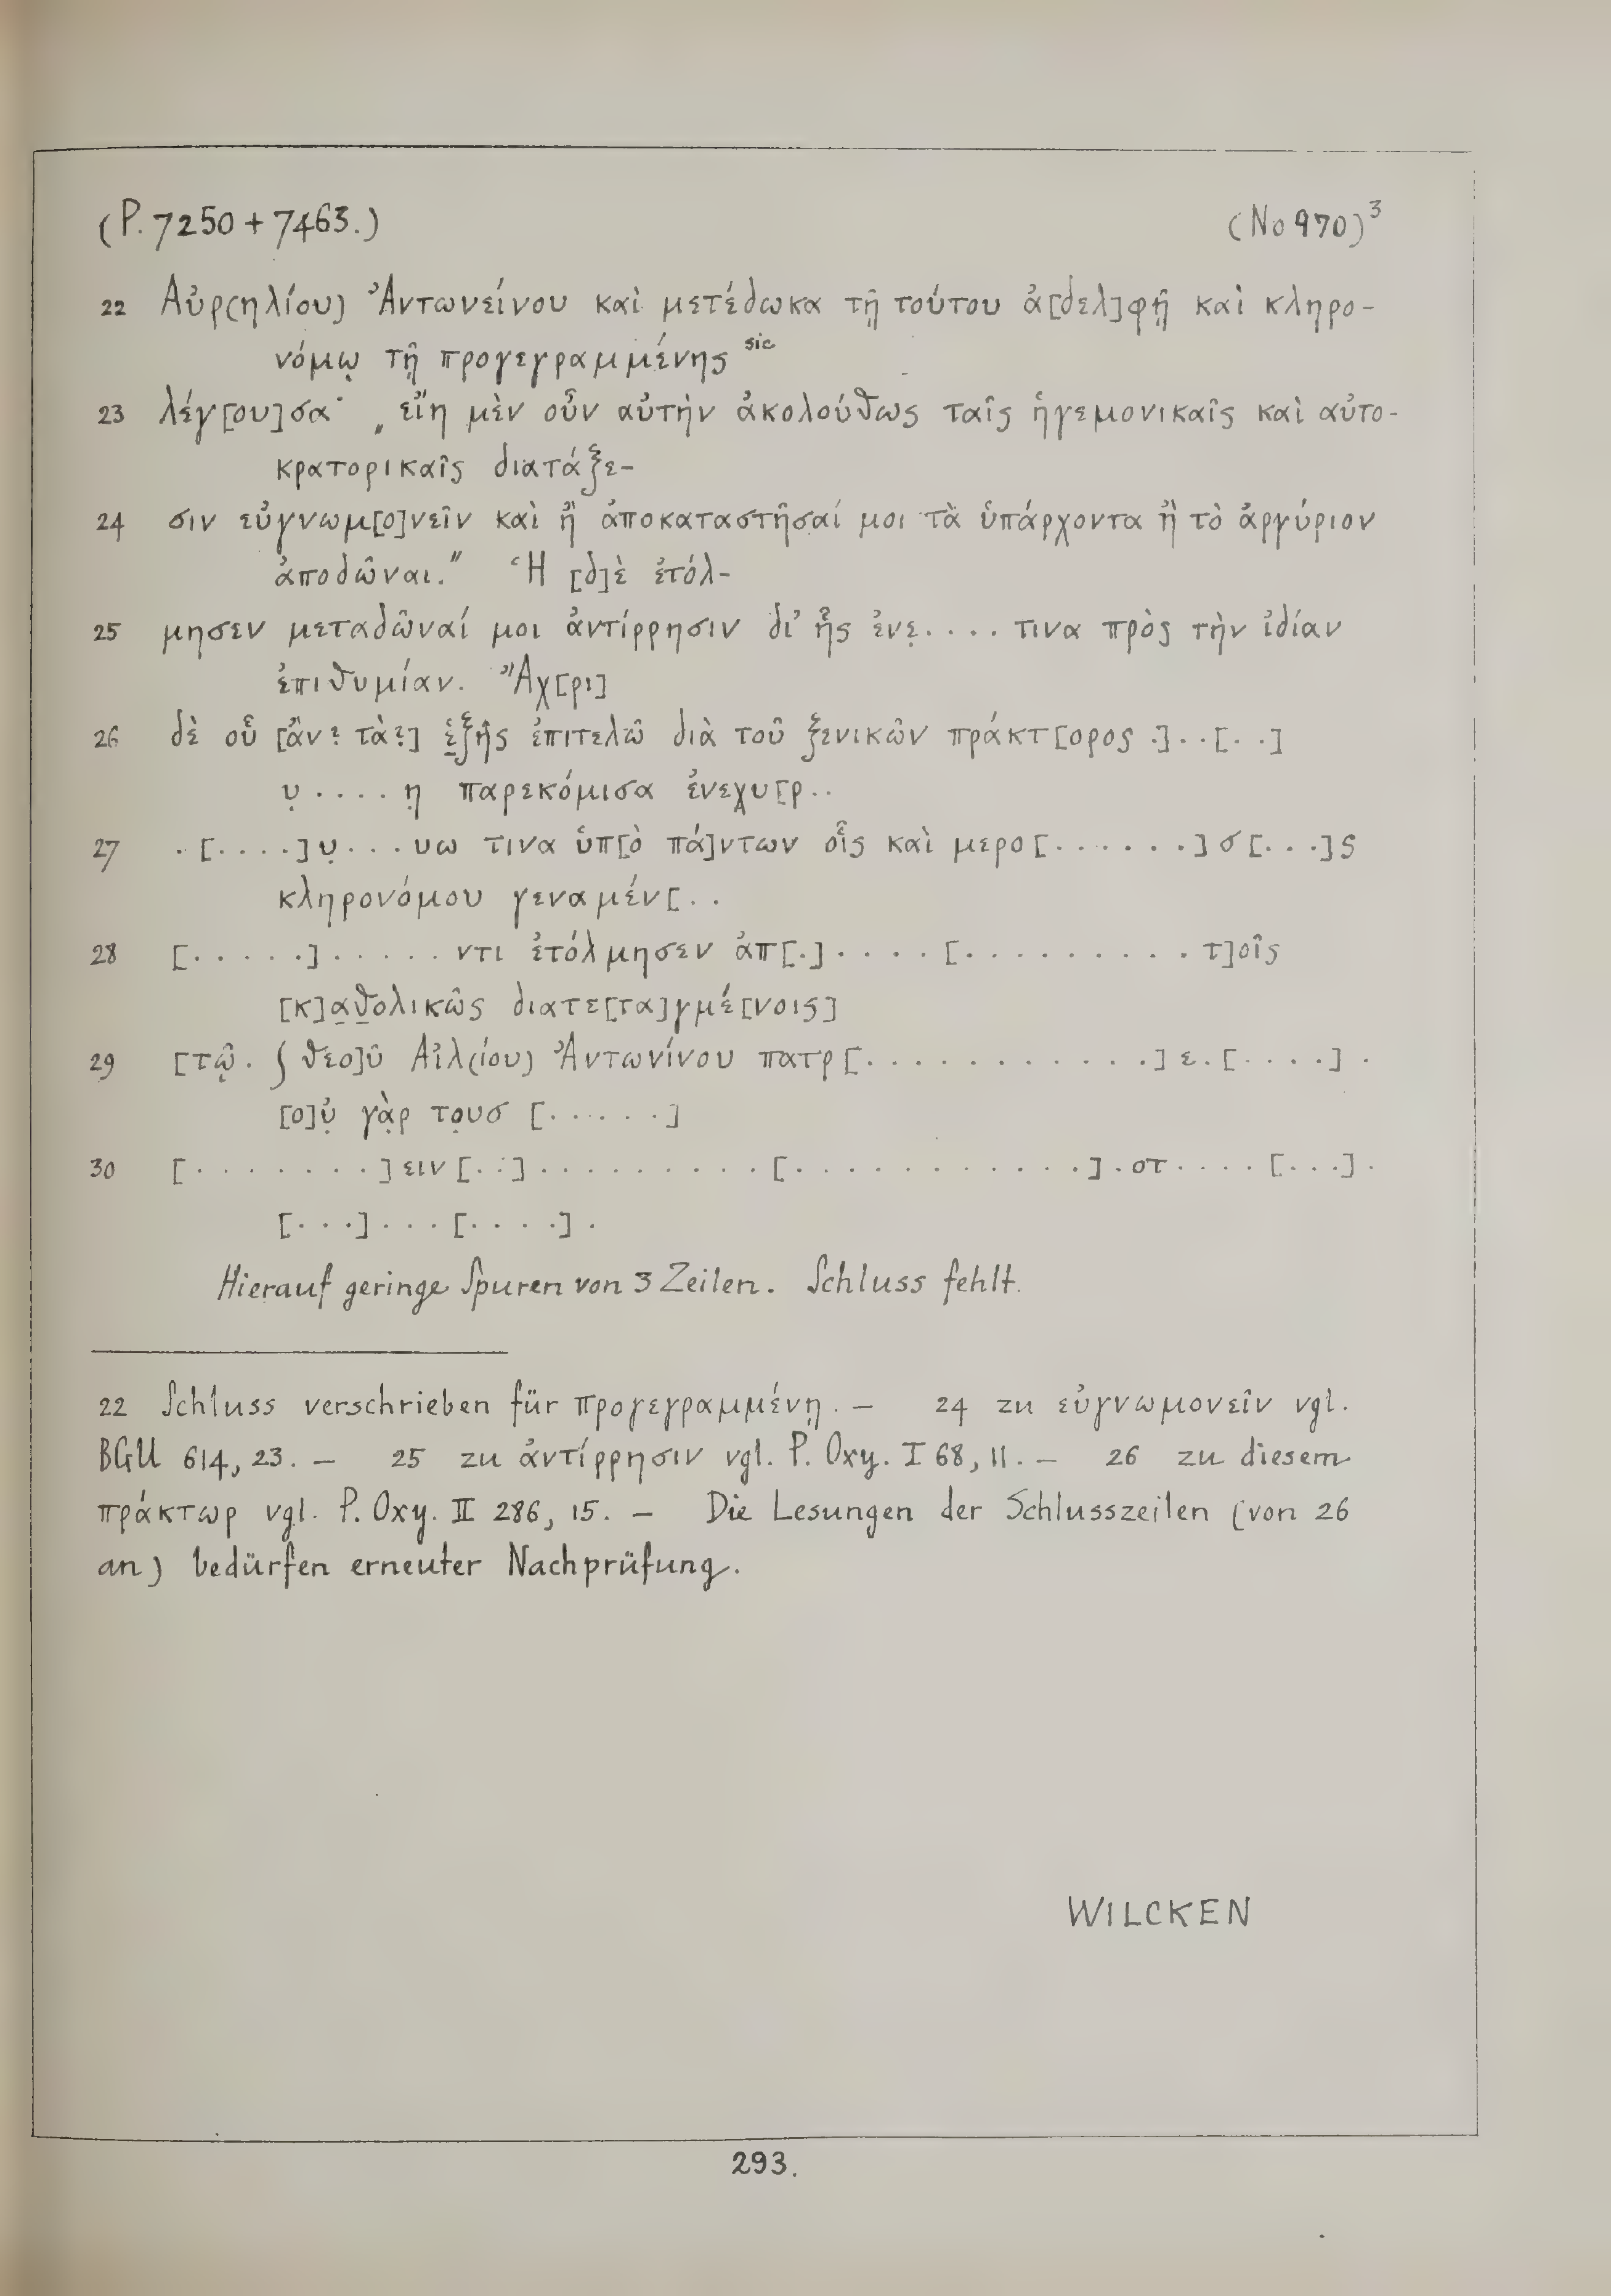 (P. 7250 + 7463.) (No 970)³
22 Αὐρ(ηλίου) Ἀντωνείνου καὶ μετέδωκα τῇ τούτου ἀ[δελ]φῇ καὶ κληρο-
νόμῳ τῇ προγεγραμμένης sic
23 λέγ[ου]σα· „εἴη μὲν οὖν αὐτὴν ἀκολούθως ταῖς ἡγεμονικαῖς καὶ αὐτο-
κρατορικαῖς διατάξε-
24 σιν εὐγνωμ[ο]νεῖν καὶ ἢ ἀποκαταστῆσαί μοι τὰ ὑπάρχοντα ἢ τὸ ἀργύριον
ἀποδῶναι.” Ἡ [δ]ὲ ἐτόλ-
25 μησεν μεταδῶναί μοι ἀντίρρησιν δι' ἧς ἐνε̣.... τινα πρὸς τὴν ἰδίαν
ἐπιθυμίαν. Ἄχ[ρι]
26 δὲ οὗ [ἂν? τὰ?] ἑξῆς ἐπιτελῶ διὰ τοῦ ξενικῶν πράκτ[ορος .]..[..]
υ̣....η̣ παρεκόμισα ἐνεχυ[ρ..
27 .[....]υ̣...υω τινα ὑπ[ὸ πά]ντων οἷς καὶ μερο[......]σ[...]ς
κληρονόμου γεναμέν[..
28 [.....]......ντι ἐτόλμησεν ἀπ[.]....[.......... τ]οῖς
[κ]αθολικῶς διατε[τα]γμέ[νοις]
29 [τῷ. ∫ θεο]ῦ Αἰλ(ίου) Ἀντωνίνου πατρ[............]ε.[....].
[ο]ὐ̣ γὰ̣ρ το̣υσ[......]
30 [........]ειν[...]..........[.............].οτ....[...].
[...]...[....].
Hierauf geringe Spuren von 3 Zeilen. Schluss fehlt.
22 Schluss verschrieben für προγεγραμμένῃ. — 24 zu εὐγνωμονεῖν vgl.
BGU 614, 23. — 25 zu ἀντίρρησιν vgl. P. Oxy. I 68, 11. — 26 zu diesem
πράκτωρ vgl. P. Oxy. II 286, 15. — Die Lesungen der Schlusszeilen (von 26
an) bedürfen erneuter Nachprüfung.
WILCKEN
293.